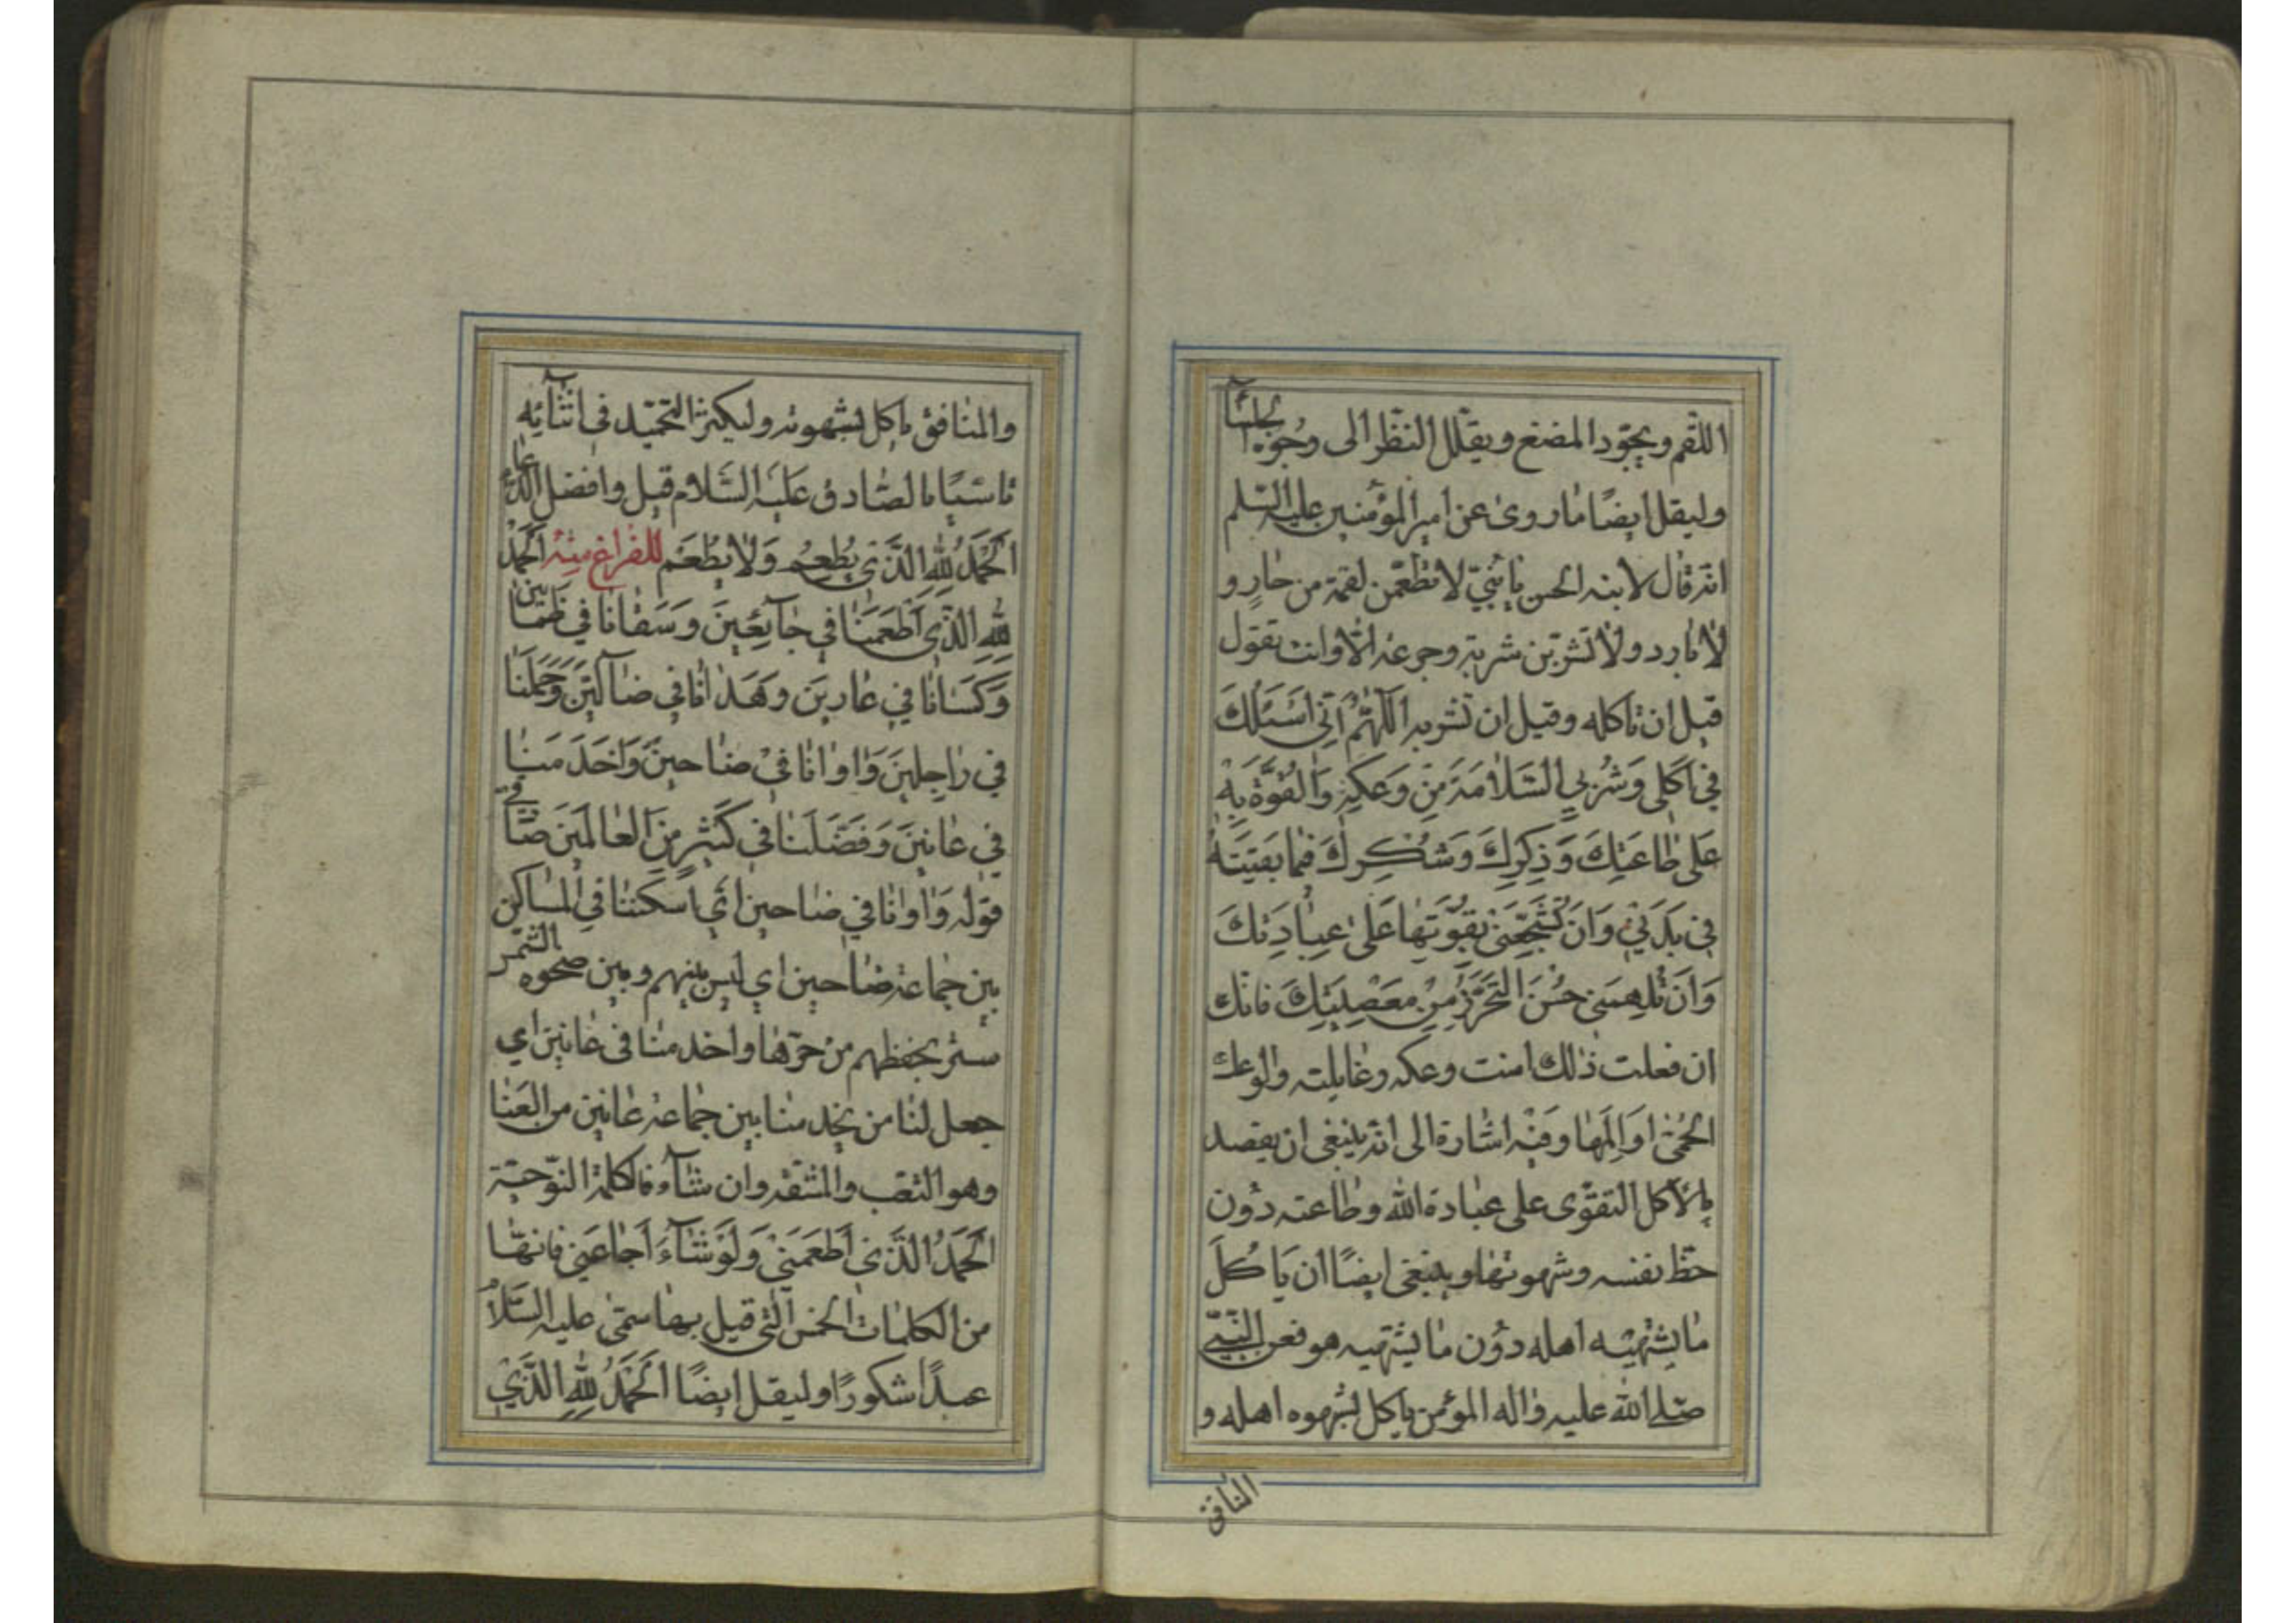 اللقم ويجوّد المضغ ويقلّل النظر الى وجوه الجلساء
وليقل ايضًا ما روى عن امير المؤمنين عليه السّلم
انه قال لابنه الحسن يا بنيّ لا تطعمن لقمة من حارٍ و
لا بارد ولا تشربن شربة وجرعة الّا وانت تقول
قبل ان تاكله وقبل ان تشربه اَللّهُمَّ اِنّى اَسْئَلُكَ
فى اَكْلى وَشُرْبي السَّلامَةَ مِنْ وَعْكِهِ وَالْقُوَّةَ بِهْ
عَلى طاعَتِكَ وَذِكْرِكَ وَشُكْرِكَ فيما بَقَّيْتَهُ
فى بَدَني وَاَنْ تُشَجِّعَنى بِقُوَّتِها عَلى عِبادَتِكَ
وَاَنْ تُلْهِمَنى حُسْنَ التَّحَرُّزِ مِنْ مَعْصِيَتِكَ فانك
ان فعلت ذلك امنت وعكه وغايلته والوعك
الحُمّى او اَلَمها وفيه اشارة الى انه ينبغى ان يقصد
بالاكل التقوّى على عبادة الله وطاعته دون
حظ نفسه وشهوتها وينبغى ايضًا ان ياكل
ما يشتهيه اهله دون ما يشتهيه هو فعن النبىّ
صلّى الله عليه واله المؤمن ياكل لشهوة اهله و
المنافق
والمنافق ياكل لشهوته وليكثر التحميد فى اثنآئه
تاسّيًا بالصّادق عليه السّلام قيل وافضل الدعاء
اَلْحَمْدُ لِلّهِ الَّذى يُطْعِمُ وَلا يُطْعَم للفراغ منه اَلْحَمْدُ
لِلّهِ الَّذى اَطْعَمَنا في جآئِعينَ وَسَقانا في ظَمْانين
وَكَسانا في عارينَ وَهَدانا في ضآلّينَ وَحَمَلَنا
في راجِلينَ وَاوانا فيْ ضاحينَ وَاَخْدَمَنا
في عانينَ وَفَضَّلَنا فى كَثيرٍ مِنَ الْعالَمينَ
قوله وَاوانا في ضاحين اي اسكننا في المساكن
بين جماعة ضاحين اي ليس بينهم وبين ضحوة الشمس
ستر يحفظهم من حرّها واخدمنا فى عانين اي
جعل لنا من يخدمنا بين جماعة عانين من العَنا
وهو التعب والمشقة وان شآء فالكلمة النّوحيّة
اَلْحَمْدُ الَّذى اَطْعَمَنيْ وَلَوْ شآءَ اَجاعَنى فانها
من الكلمات الخمس التى قيل بها سمّى عليه السّلام
عبدًا شكورًا وليقل ايضًا اَلْحَمْدُ لِلّهِ الَّذيْ